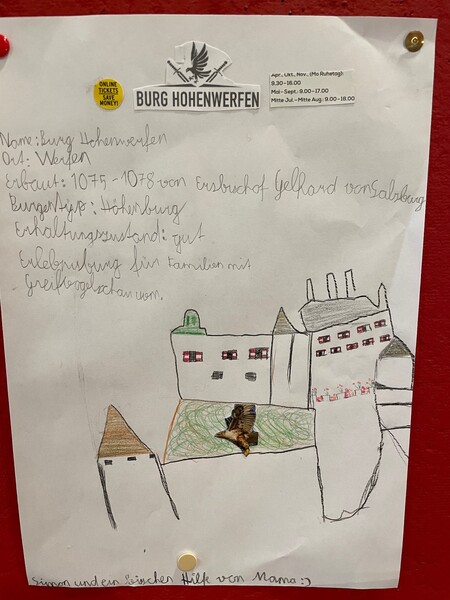 ONLINE
TICKETS
SAVE
MONEY!
BURG HOHENWERFEN
Apr., Okt., Nov., (Mo Ruhetag):
9.30-16.00
Mai-Sept.: 9.00-17.00
Mitte Jul.-Mitte Aug.: 9.00-18.00
Name: Burg Hohenwerfen
Ort: Werfen
Erbaut: 1075-1078 von Ersbischof Gebhard von Salzburg
Burgentyp: Höhenburg
Erhaltungszustand: gut
Erlebnisburg für Familien mit
Greifvogelschauen.
Simon und ein bisschen Hilfe von Mama:)